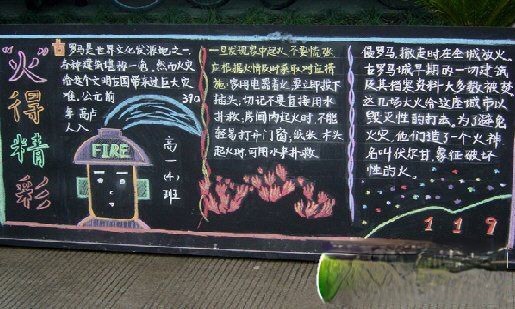 "火"得精彩
古罗马是世界文化发源地之一
各种建筑堪称一绝,然而火灾
给这个文明古国带来过巨大灾
难.公元前390
年高卢
人入
FIRE
高一(4)班
一旦发现家中起火,不要慌张,
应根据火情及时采取对应措
施,家用电器着火,要立即拔下
插头,切记不要直接用水
扑救,房间内起火时,不能
轻易打开门窗,纸张、木头
起火时,可用水来扑救
侵罗马,撤走时在全城放火.
古罗马城早期的一切建筑
及其指定资料大多数被焚
这几场大火给这座城市以
毁灭性的打击.为了避免
火灾,他们造了一个火神
名叫伏尔甘,象征破坏
性的火.
119